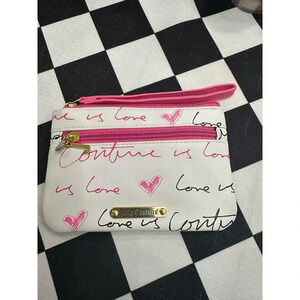 is Love Love
Couture is Love
is Love Love is
Love is Couture
Juicy Couture